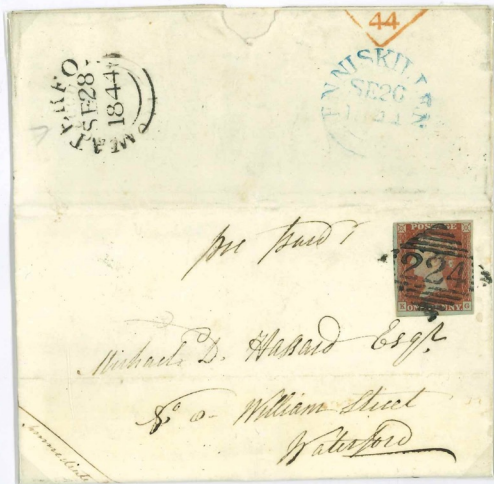 44
WATERFO
SE28
1844
ENNISKILLEN
SE26
POSTAGE
224
ONE PENNY
K G
pre paid
Michael D. Hassard Esqr.
William Street
Waterford
immediate